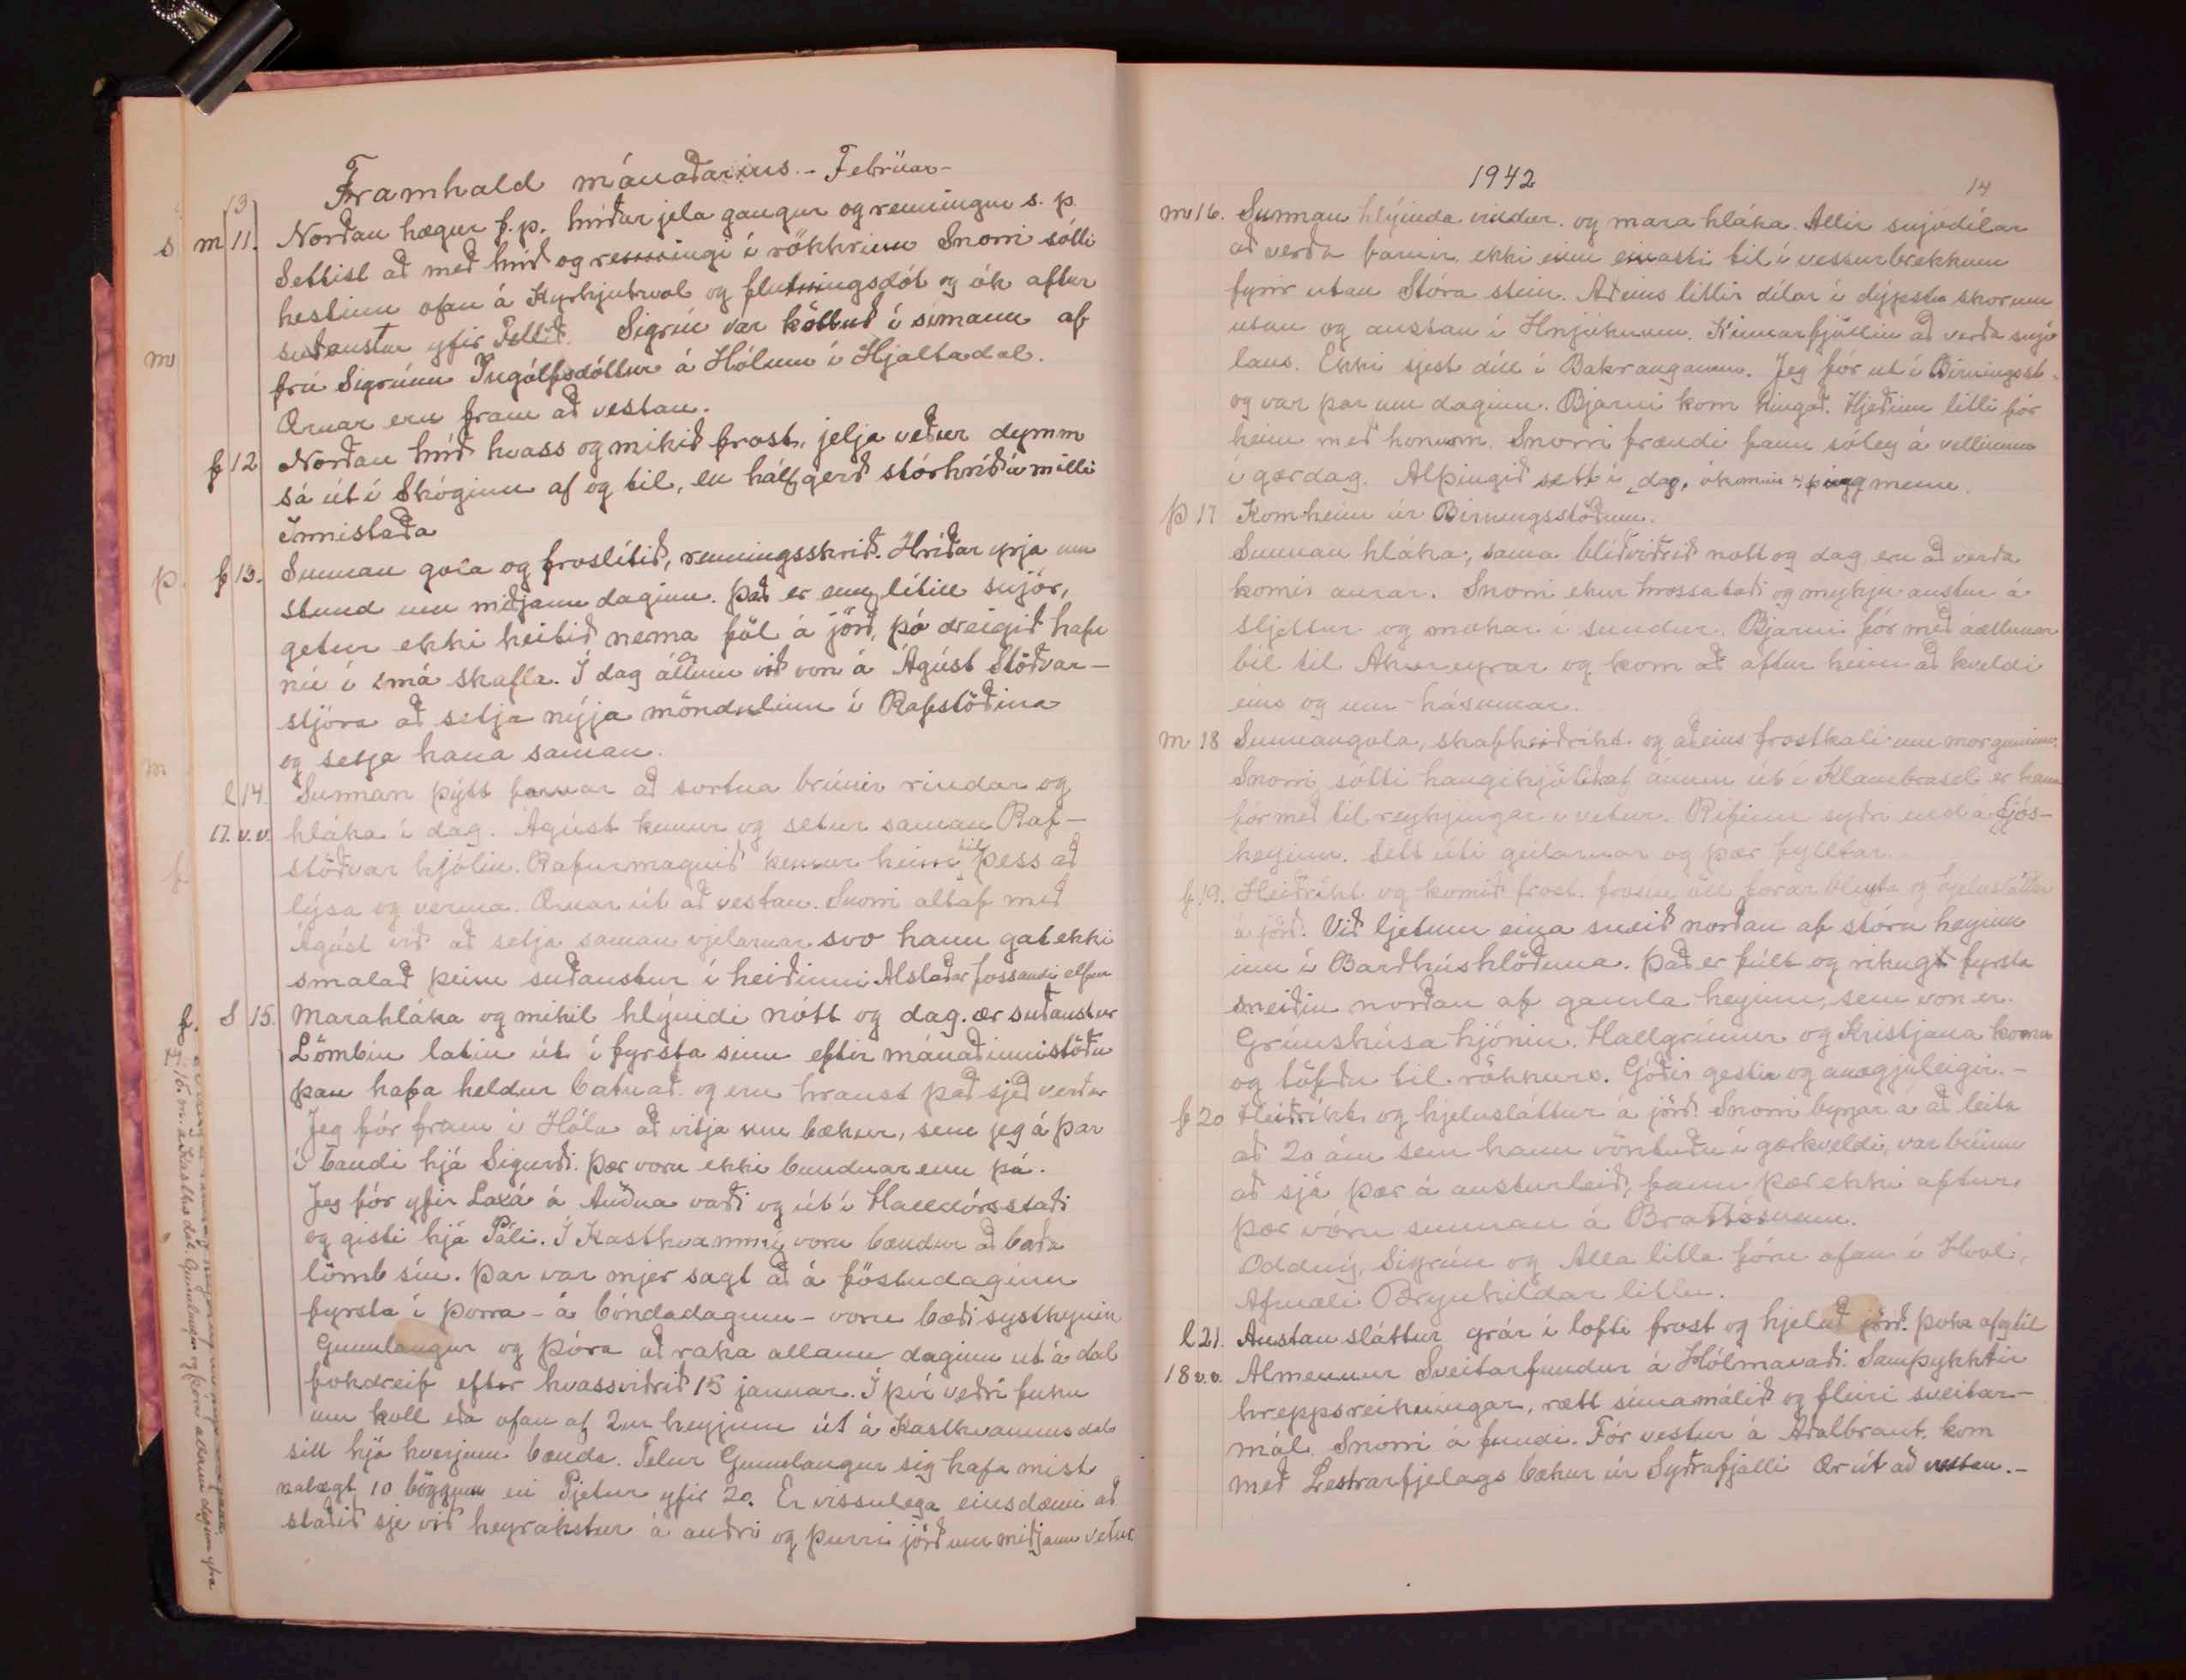 Framhald mánaðarins.- Febrúar-
13
s m 11. Norðan hægur f.p. hríðarjela gangur og renningur s.p.
Settist að með hríð og renningi í rökkrinu Snorri sótti
hestinn ofan á Kyrkjuhvol og flutningsdót og ók aftur
suðaustur yfir Fellið. Sigrún var kölluð í símann af
frú Sigrúnu Ingólfsdóttur á Hólum í Hjaltadal.
Ærnar eru fram að vestan.
f 12 Norðan hríð hvass og mikið frost, jelja veður dymm
sá út í Skóginn af og til, en hálfgerð stórhríð á milli
Innistaða
f 13. Sunnan gola og frostlítið, renningsskrið. Hríðar ypja um
stund um miðjann daginn. Það er enn lítill snjór,
getur ekki heitið nema föl á jörð, þó dreigið hafi
nú í smá skafla. Í dag áttum við von á Ágúst Stöðvar-
stjóra að setja nýja möndulinn í Rafstöðina
og setja hana saman.
l 14. Sunnan þýtt farnar að sortna brúnir rindar og
17. v.v. hláka í dag. Ágúst kemur og setur saman Raf-
stöðvar hjólin. Rafurmagnið kemur heim til þess að
lýsa og verma. Ærnar út að vestan. Snorri altaf með
Ágúst við að setja saman vjelarnar svo hann gat ekki
smalað þeim suðaustur í heiðinni Alstaðar fossandi elfur
S 15. Marahláka og mikil hlýindi nótt og dag. ær suðaustur
Lömbin látin út í fyrsta sinn eftir mánaðinnistöðu
þau hafa heldur batnað og eru hraust það sjeð verður
Jeg fór fram í Hóla að vitja um bækur, sem jeg á þar
í bandi hjá Sigurði. Þær voru ekki bundnar enn þá.
Jeg fór yfir Laxá á Auðna vaði og út í Halldórsstaði
og gisti hjá Páli. Í Kasthvammi voru bændur að baða
lömb sín. Þar var mjer sagt að á föstudaginn
fyrsta í Þorra - á bóndadaginn - voru bæði systkynin
Gunnlaugur og Þóra að raka allann daginn út á dal
fokdreif eftir hvassviðrið 15 janúar. Í því veðri fuku
um koll eða ofan af 2ur heyjum út á Kasthvammsdal
sitt hjá hverjum bónda. Telur Gunnlaugur sig hafa mist
nálægt 10 böggum en Pjetur yfir 20. Er vissulega einsdæmi að
staðið sje við heyrakstur á auðri og þurri jörð um miðjann vetur
1942
14
m 16. Sunnan hlýinda vindur og mara hláka. Allir snjódílar
að verða farnir, ekki einn einasti til í vesturbrekkum
fyrir utan Stóra stein. Aðeins litlir dílar í dýpstu skorum
utan og austan í Hnjúknum. Kinnarfjöllin að verða snjó
laus. Ekki sjest díll í Bakranganum. Jeg fór út í Birningsst-
og var þar um daginn. Bjarni kom hingað. Hjeðinn litli fór
heim með honum. Snorri frændi fann sóley á vellinum
í gærdag. Alþingið sett í dag, ókomnir 4 þingmenn.
þ 17 Kom heim úr Birningsstöðum.
Sunnan hláka, sama blíðviðrið nótt og dag, eru að verða
komir aurar. Snorri ekur hrossataði og mykju austur á
Sljettur og mokar í sundur. Bjarni fór með áætlunar
bíl til Akureyrar og kom að aftur heim að kveldi
eins og um hásumar.
m 18 Sunnangola, skafheiðríkt og aðeins frostkali um morguninn.
Snorri sótti hangikjötið af ánum út í Klambrasel er hann
fór með til reykjingar í vetur. Rifinn syðri endi á Fjós-
heyinu. Sett úti gularnar og þær fylltar.
f 19. Heiðríkt og komið frost. frosin öll forar bleyta og hjelusláttur
á jörð. Við ljetum eina sneið norðan af stóra heyinu
inn í Barðhúshlöðuna. Það er fúlt og rikugt fyrsta
sneiðin norðan af gamla heyinu, sem von er.
Grímshúsa hjónin. Hallgrímur og Kristjana komu
og töfðu til rökkurs. Góðir gestir og anægjuleigir.-
f 20 Heiðríkt og hjelusláttur á jörð. Snorri byrjar á að leita
að 20 ám sem hann vöntuðu í gærkveldi, var búinn
að sjá þær á austurleið, fann þær ekki aftur,
þær vóru sunnan á Brattásnum.
Oddný, Sigrún og Alla litla fóru ofan í Hvol.
Afmæli Brynhildar litlu.
l 21. Austan sláttur grár í lofti frost og hjeluð jörð. Þoka af og til
18 v.v. Almennur Sveitarfundur á Hólmavaði. Samþykktir
hreppsreikningar, rætt símamálið og fleiri sveitar-
mál. Snorri á fundi. Fór vestur á Aðalbraut. kom
með Lestrarfjelags bækur úr Syðrafjalli Ær út að vestan.-